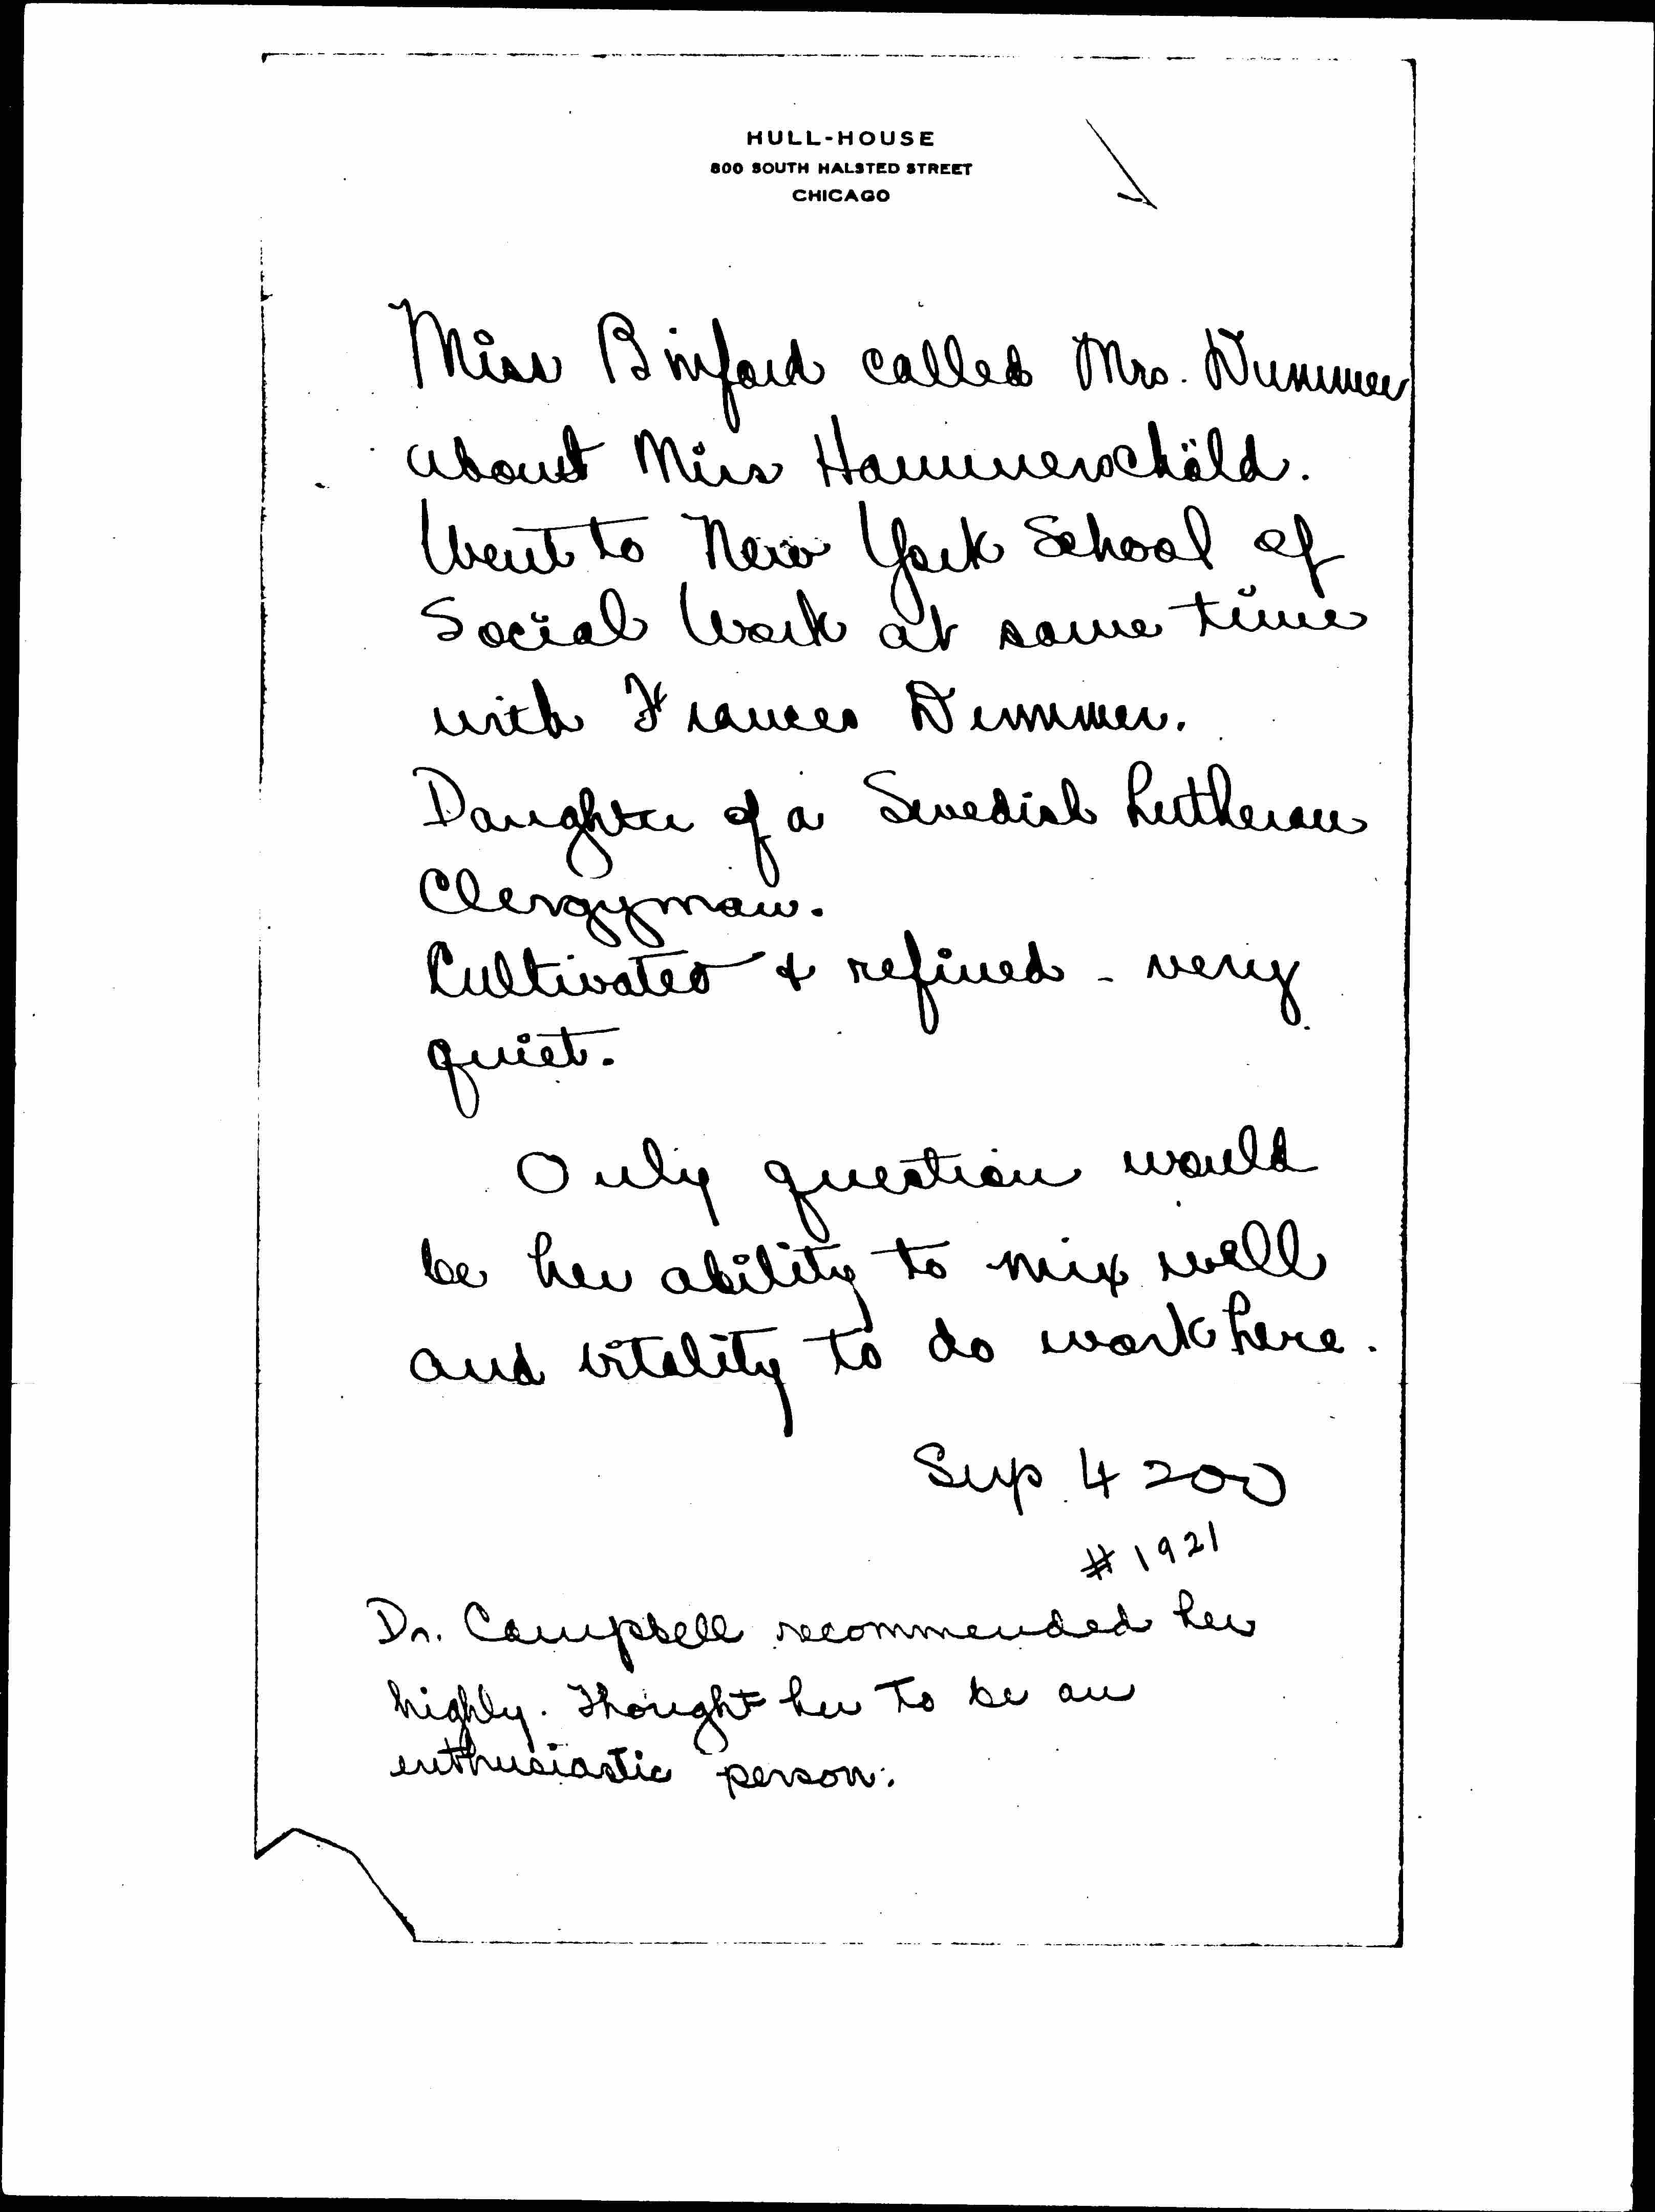 HULL-HOUSE
800 SOUTH HALSTED STREET
CHICAGO
Miss Binford called Mrs. Dummer
about Miss Hammerschöld.
Went to New York School of
Social Work at same time
with Frances Dummer.
Daughter of a Swedish Lutheran
Clergyman.
Cultivated & refined - very
quiet.
Only question would
be her ability to mix well
and vitality to do work here.
Sup 4200
# 1921
Dr. Campbell recommended her
highly. Thought her to be an
enthusiastic person.